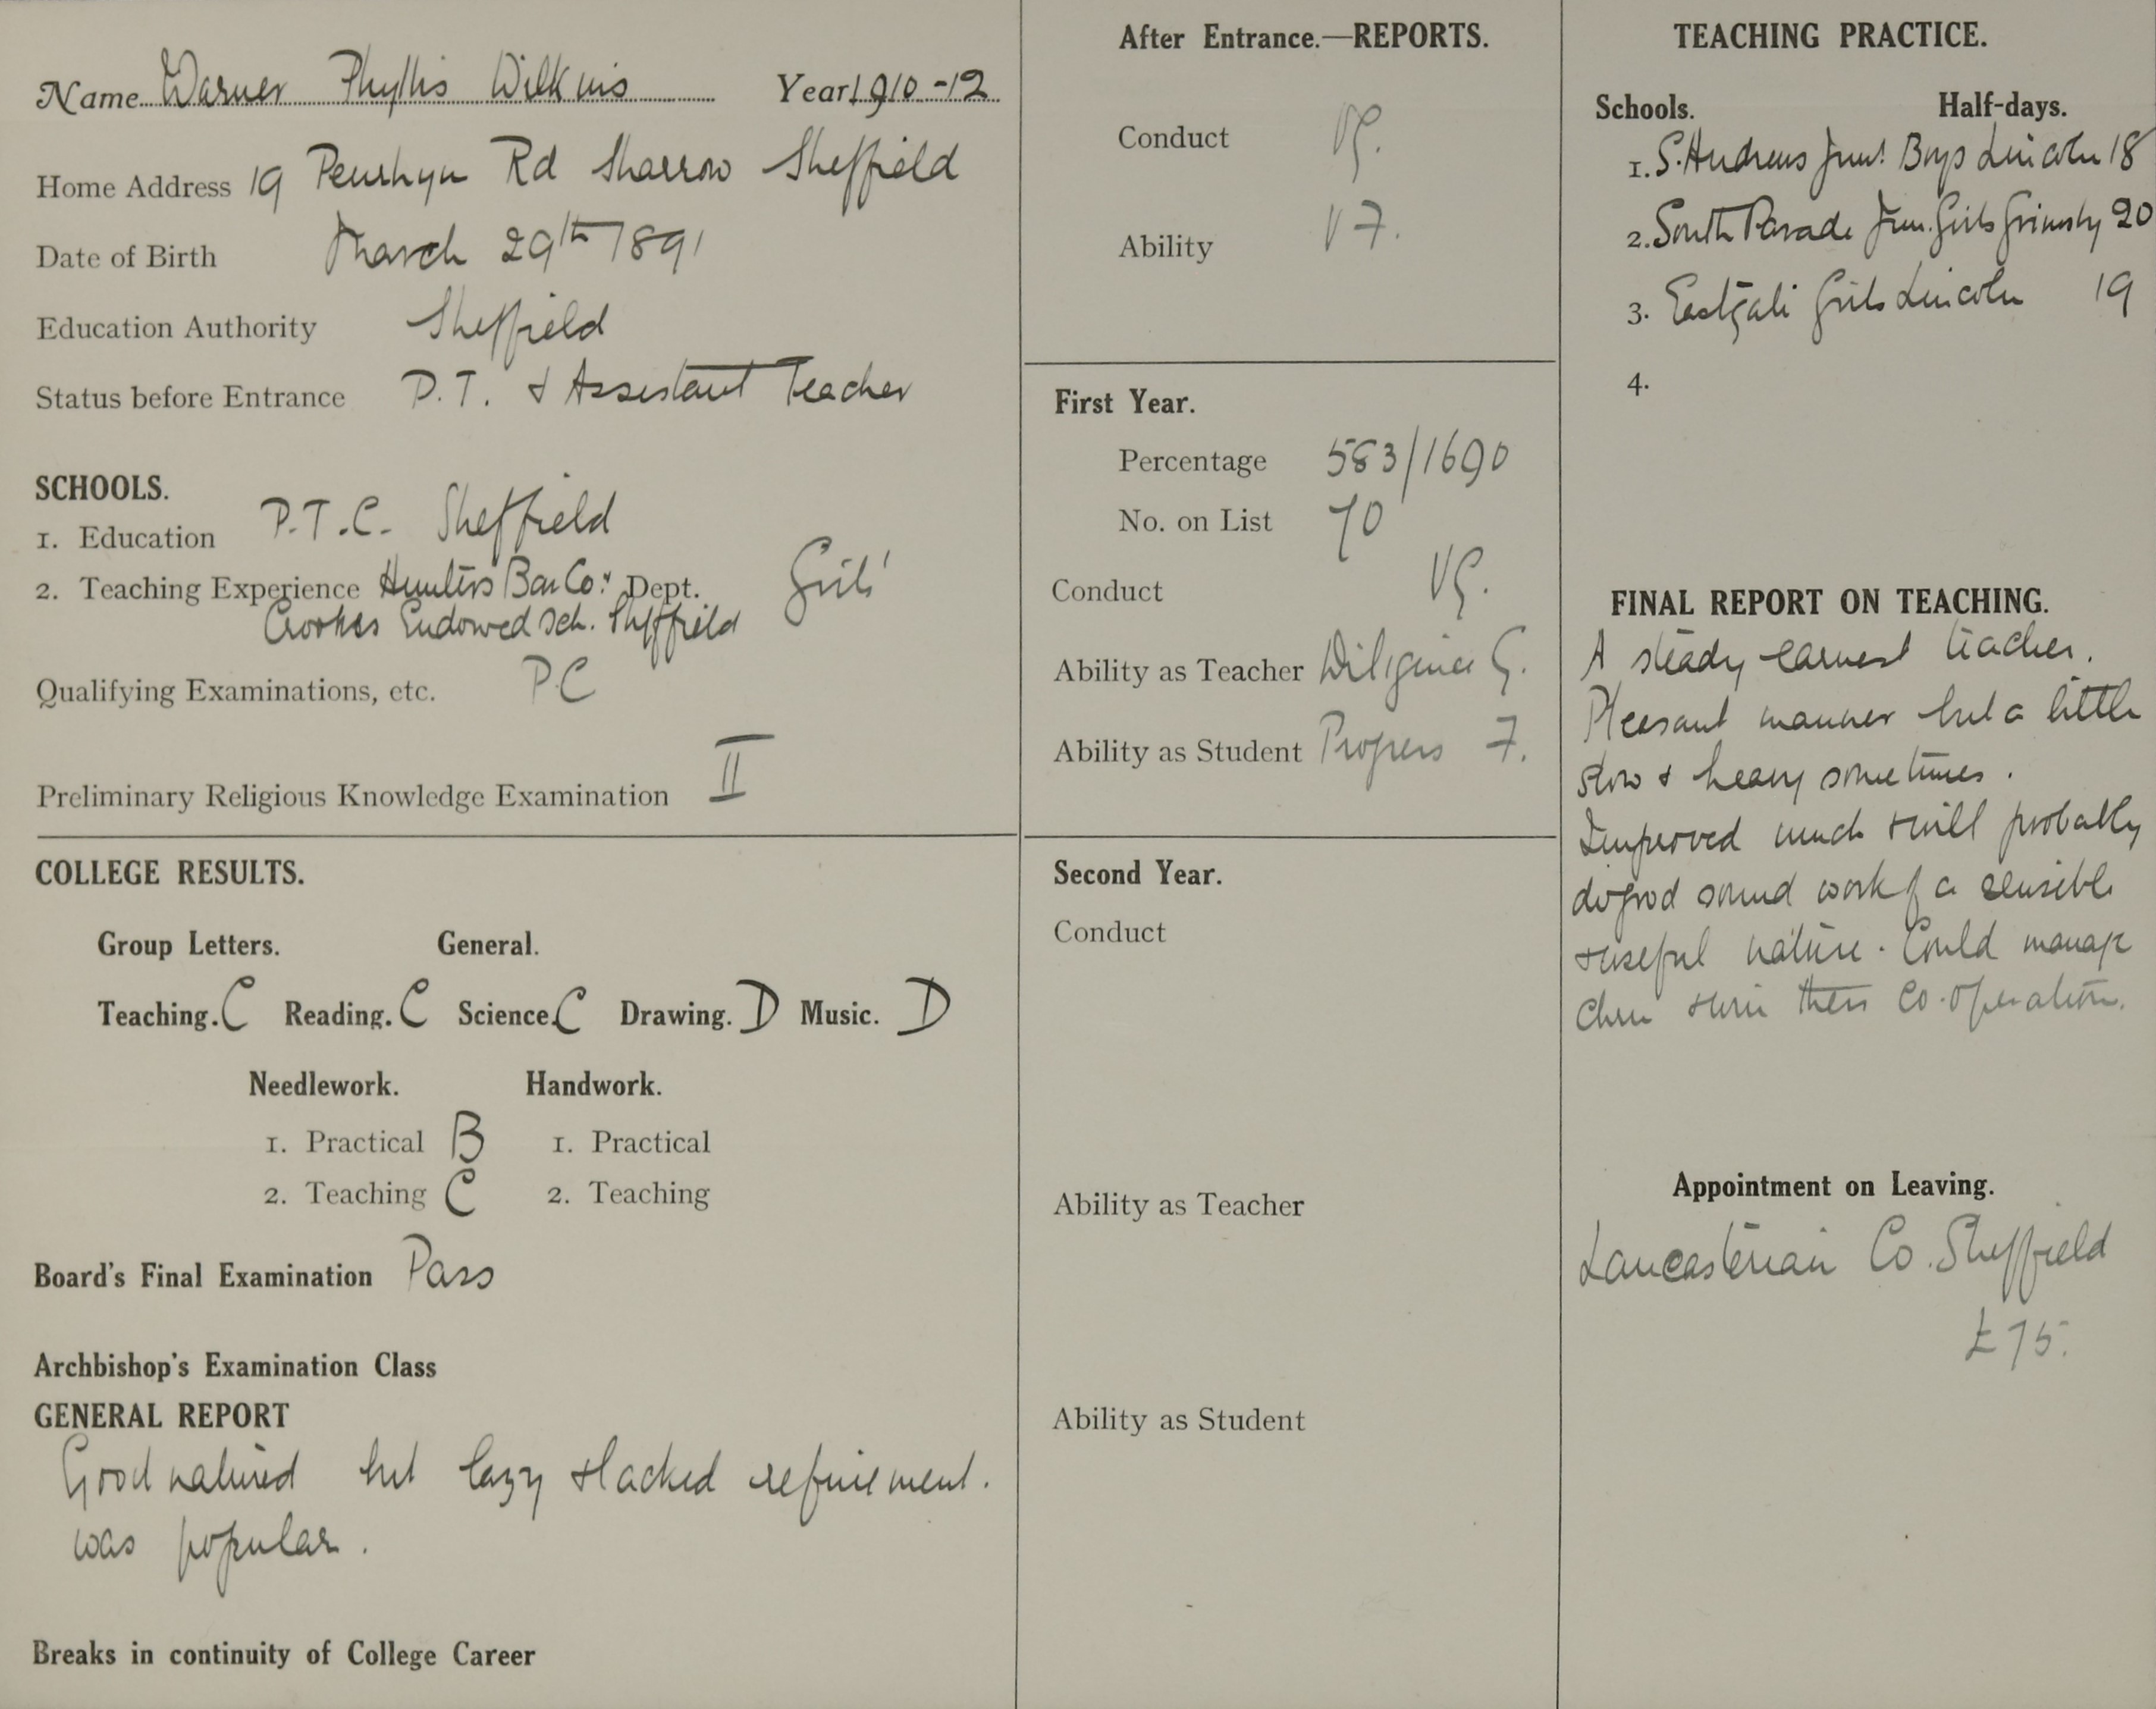 Name Warner Phyllis Wilkins Year 1910-12
Home Address 19 Penrhyn Rd Sharrow Sheffield
Date of Birth March 29th 1891
Education Authority Sheffield
Status before Entrance P.T. & Assistant Teacher
SCHOOLS.
1. Education P.T.C. Sheffield
2. Teaching Experience Hunters Bar Co: Dept. Girls'
Crookes Endowed Sch. Sheffield
Qualifying Examinations, etc. PC
Preliminary Religious Knowledge Examination II
COLLEGE RESULTS.
Group Letters. General.
Teaching. C Reading. C Science. C Drawing. D Music. D
Needlework. Handwork.
1. Practical B 1. Practical
2. Teaching C 2. Teaching
Board's Final Examination Pass
Archbishop's Examination Class
GENERAL REPORT
Good natured but lazy & lacked refinement.
was popular.
Breaks in continuity of College Career
After Entrance.—REPORTS.
Conduct VG.
Ability VF.
First Year.
Percentage 583/1690
No. on List 70
Conduct VG.
Ability as Teacher Diligence G.
Ability as Student Progress F.
Second Year.
Conduct
Ability as Teacher
Ability as Student
TEACHING PRACTICE.
Schools. Half-days.
1. S. Andrews Junr Boys Lincoln 18
2. South Parade Jun. Girls Grimsby 20
3. Eastgate Girls Lincoln 19
4.
FINAL REPORT ON TEACHING.
A steady earnest teacher.
Pleasant manner but a little
slow & heavy sometimes.
Improved much & will probably
do good sound work of a sensible
& useful nature. Could manage
chn & win their co-operation.
Appointment on Leaving.
Lancasterian Co. Sheffield
£75.